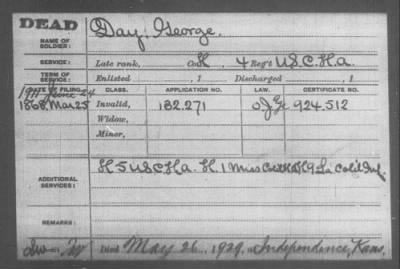 DEAD
NAME OF SOLDIER: Day, George.
SERVICE: Late rank, Co H, 4 Reg't U.S.C.H.a.
TERM OF SERVICE: Enlisted , 1 Discharged , 1
DATE OF FILING. CLASS. APPLICATION NO. LAW. CERTIFICATE NO.
1911 June 24
1868 Mar 25 Invalid, 182.271 924.512
Widow,
Minor,
ADDITIONAL SERVICES: H 5 U.S.C.H.a. H. 1 Miss H 9 La Col'd Inf.
REMARKS:
Died May 26, 1929, at Independence, Kans.